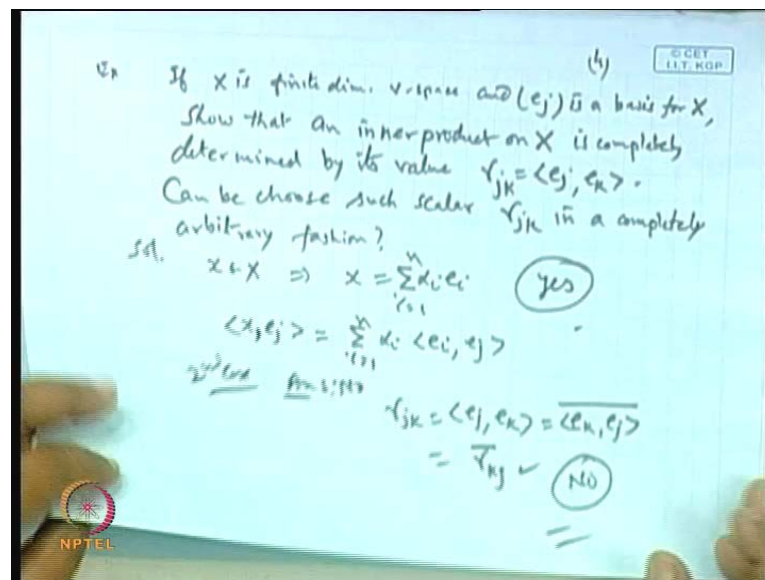 (4)
© CET
I.I.T. KGP
Ex If X is finite dim. v. space and (ej) is a basis for X,
Show that an inner product on X is completely
determined by its value γjk = <ej, ek>.
Can be choose such scalar γjk in a completely
arbitrary fashion?
Sol. x ∈ X ⇒ x = Σ_{i=1}^{n} αi ei yes
<x, ej> = Σ_{i=1}^{n} αi <ei, ej>
γjk = <ej, ek> = \overline{<ek, ej>}
= \overline{γ}kj ✓ NO
NPTEL